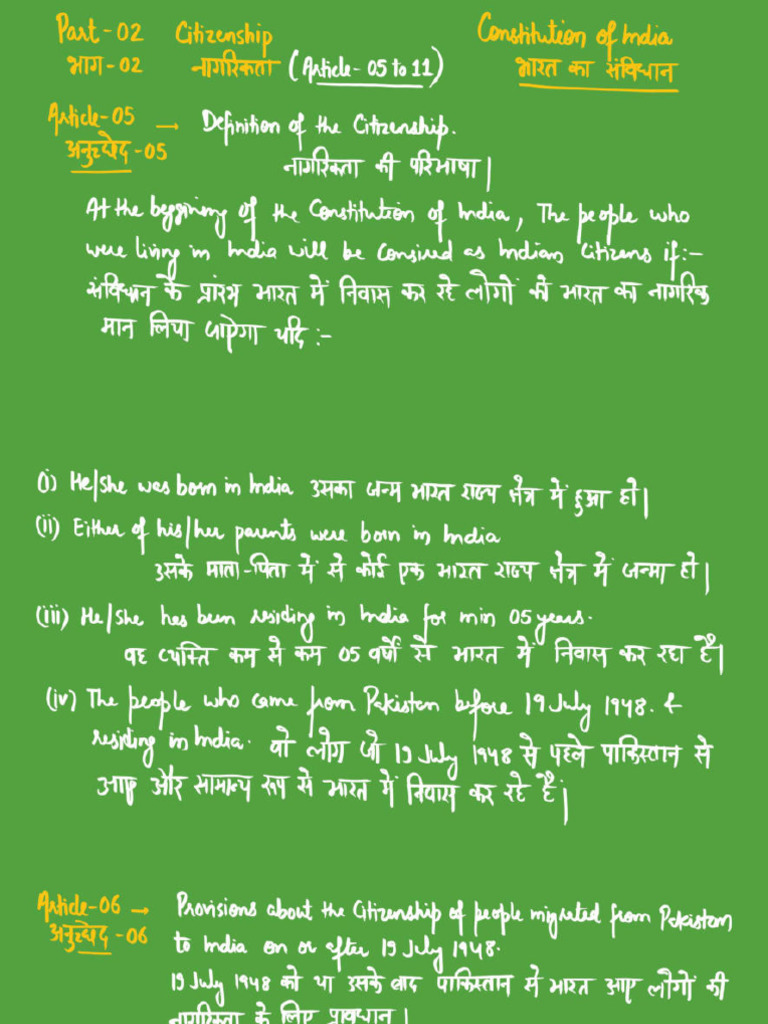 Part-02 Citizenship Constitution of India
भाग-02 नागरिकता (Article- 05 to 11) भारत का संविधान
Article-05 → Definition of the Citizenship.
अनुच्छेद-05 नागरिकता की परिभाषा|
At the beggining of the Constitution of India, The people who
were living in India will be Consired as Indian Citizens if:-
संविधान के प्रांरभ भारत में निवास कर रहे लोगों को भारत का नागरिक
मान लिया जाऐगा यदि :-
(i) He/She was born in India उसका जन्म भारत राज्य क्षेत्र में हुआ हो|
(ii) Either of his/her parents were born in India
उसके माता-पिता में से कोई एक भारत राज्य क्षेत्र में जन्मा हो|
(iii) He/She has been residing in India for min 05 years.
वह व्यक्ति कम से कम 05 वर्षों से भारत में निवास कर रहा है|
(iv) The people who came from Pakistan before 19 July 1948. &
residing in India. वो लोग जो 19 July 1948 से पहले पाकिस्तान से
आए और सामान्य रूप से भारत में निवास कर रहे हैं|
Article-06 → Provisions about the Citizenship of people migrated from Pakistan
अनुच्छेद-06 to India on or after 19 July 1948.
19 July 1948 को या उसके बाद पाकिस्तान से भारत आए लोगों की
नागरिकता के लिए प्रावधान|